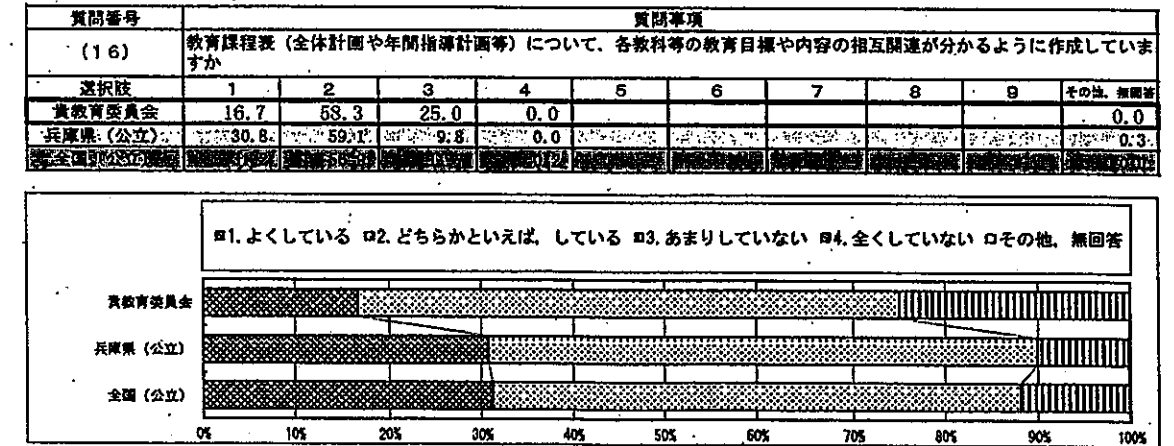 質問番号 質問事項
(16) 教育課程表（全体計画や年間指導計画等）について、各教科等の教育目標や内容の相互関連が分かるように作成していま
すか
選択肢 1 2 3 4 5 6 7 8 9 その他，無回答
貴教育委員会 16.7 58.3 25.0 0.0 0.0
兵庫県（公立） 30.8 59.1 9.8 0.0 0.3
全国（公立）
1.よくしている 2.どちらかといえば，している 3.あまりしていない 4.全くしていない その他，無回答
貴教育委員会
兵庫県（公立）
全国（公立）
0% 10% 20% 30% 40% 50% 60% 70% 80% 90% 100%